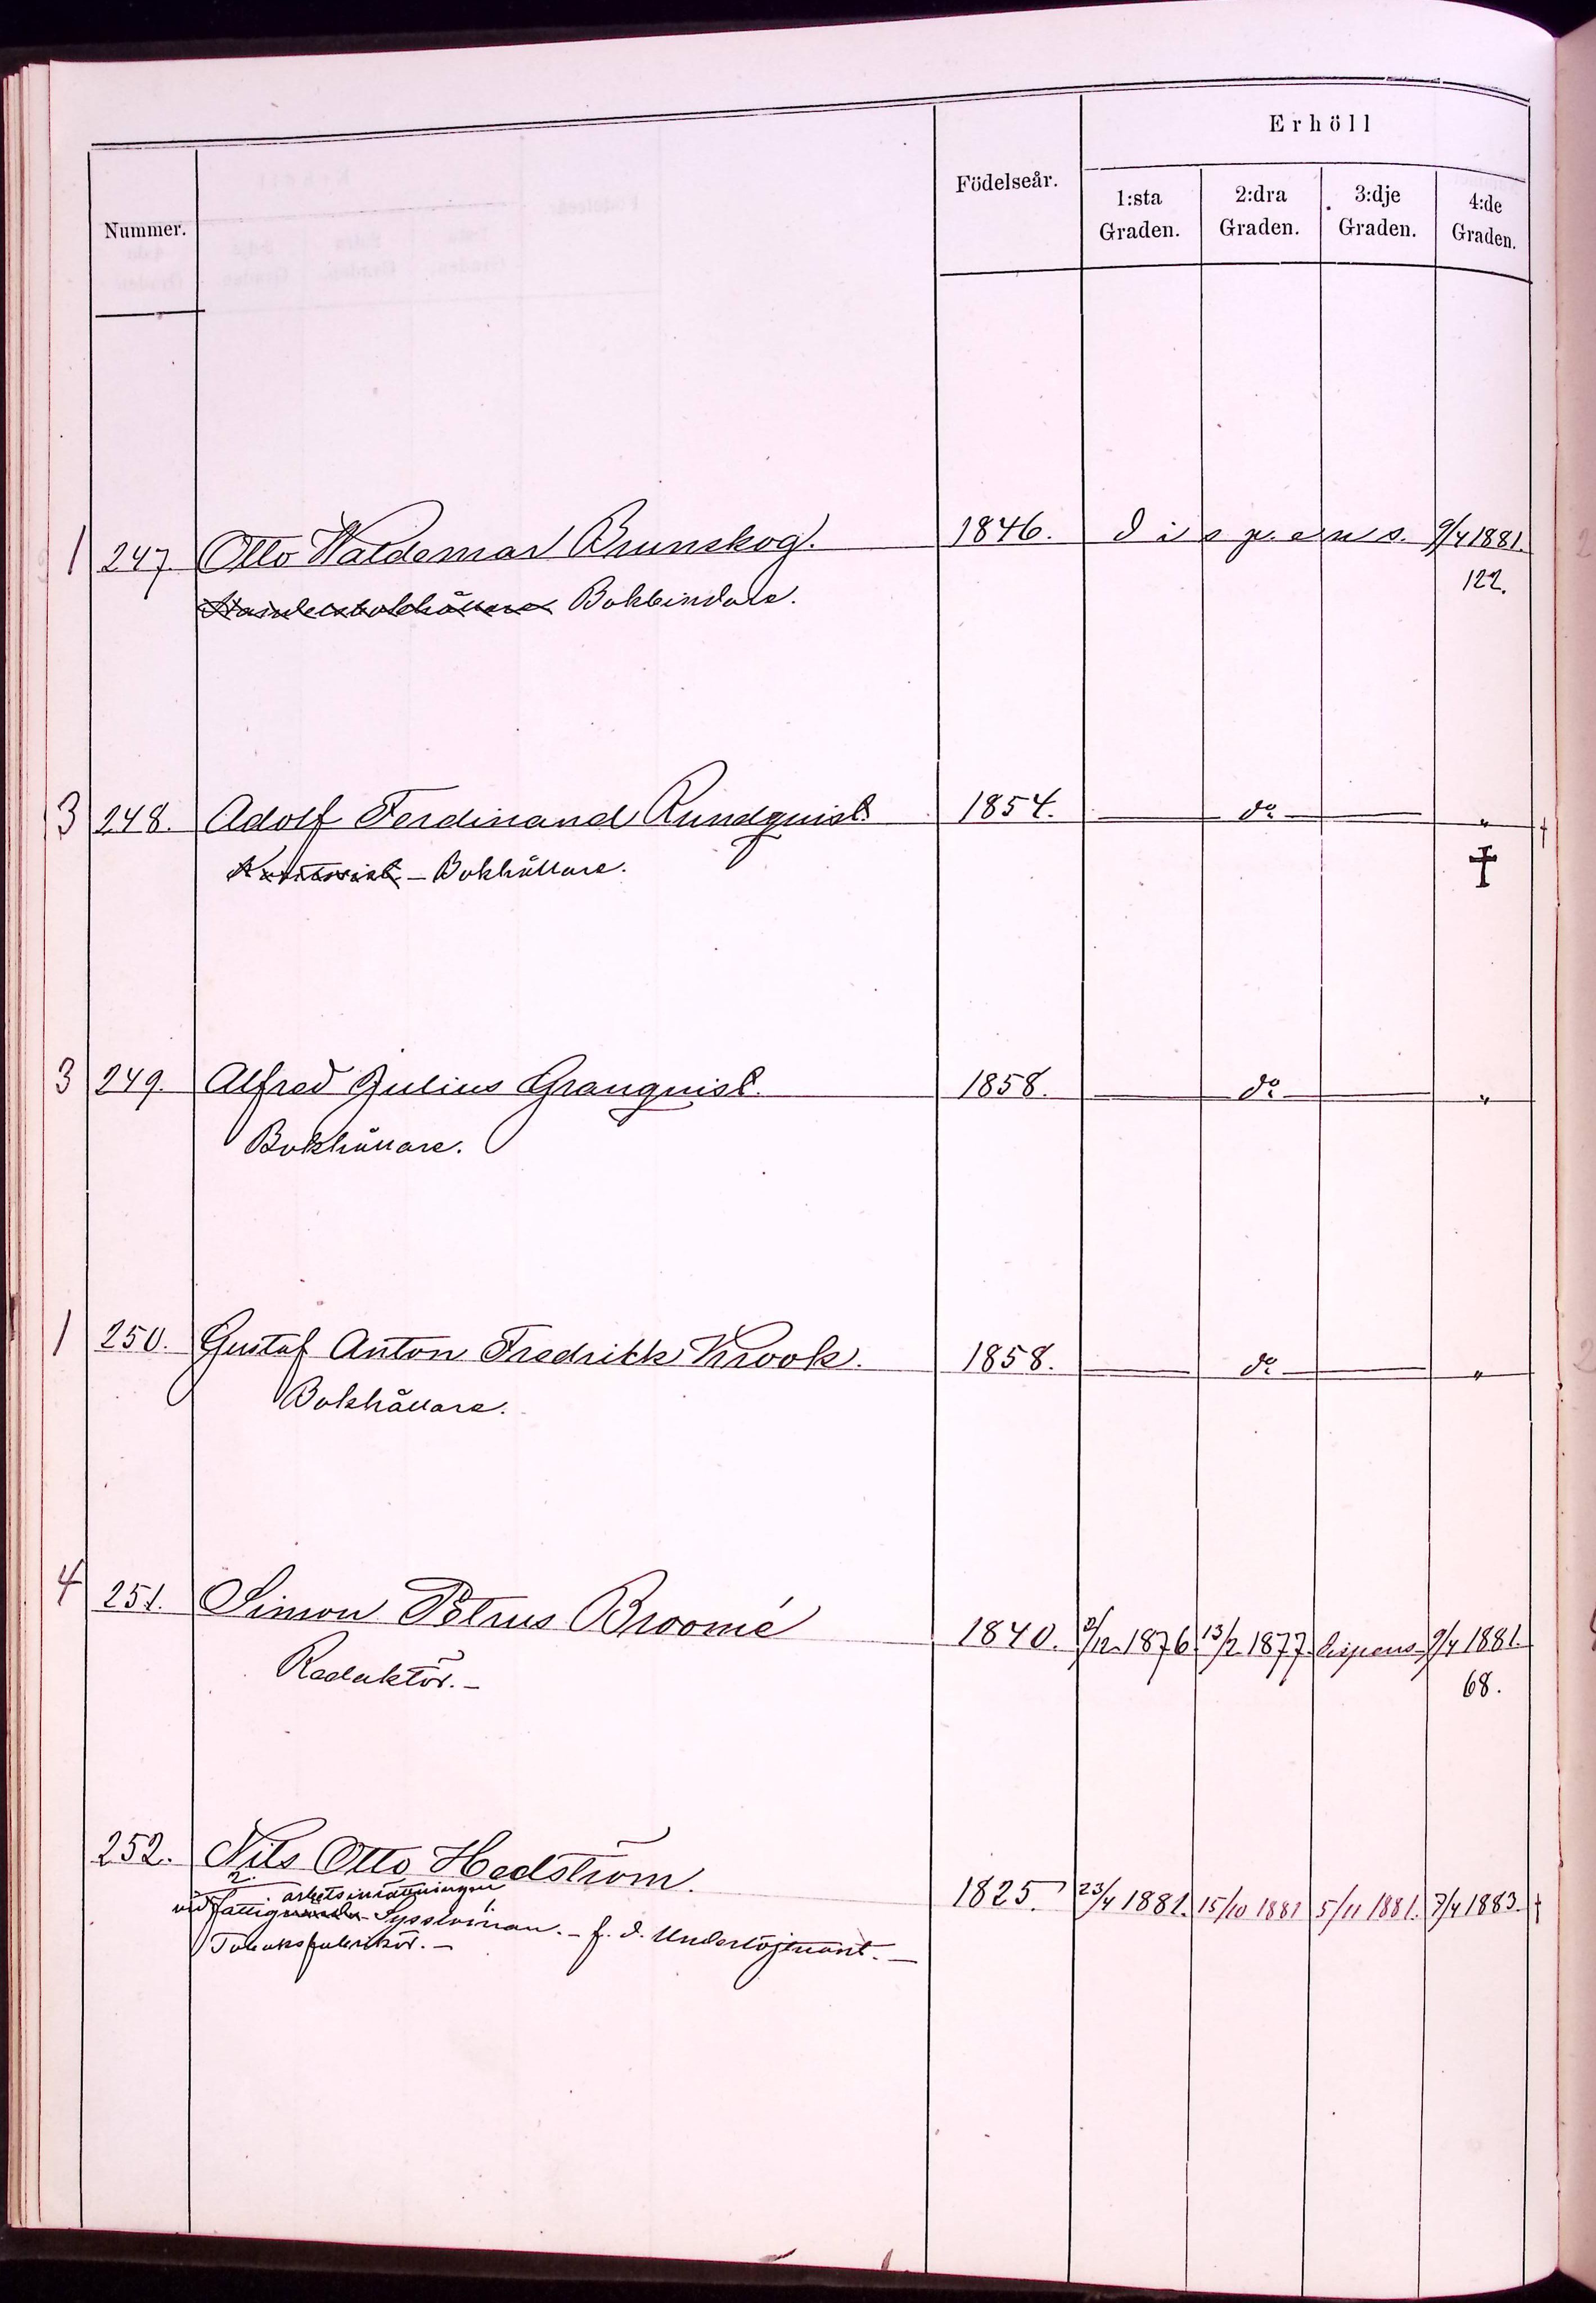 Nummer. Födelseår. Erhöll
1:sta Graden. 2:dra Graden. 3:dje Graden. 4:de Graden.
1 247. Otto Waldemar Brunskog. 1846. dispens. 9/4 1881.
Handelsbokhållare Bokbindare. 122.
3 248. Adolf Ferdinand Rundquist. 1854. do "
Kontorist - Bokhållare. †
3 249. Alfred Julius Granquist. 1858. do "
Bokhållare.
1 250. Gustaf Anton Fredrikk Krook. 1858. do "
Bokhållare.
4 251. Simon Petrus Broomé 1840. /12 1876 13/2 1877. dispens. 9/4 1881.
Redaktör. - 68.
252. Nils Otto Hedström. 1825. 23/4 1881. 15/10 1881 5/11 1881. 7/4 1883. †
2. arbetsinrättningen
vid Fattig Sysslöman. - f. d. Underlöjtnant. -
Tobaksfabrikör. -